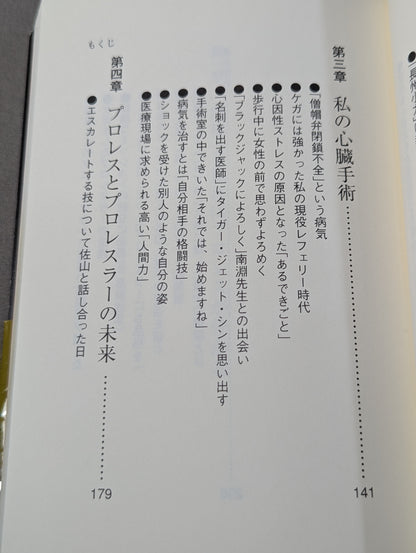 もくじ
第三章　私の心臓手術……………………141
●「僧帽弁閉鎖不全」という病気
●ケガには強かった私の現役レフェリー時代
●心因性ストレスの原因となった「あるできごと」
●歩行中に女性の前で思わずよろめく
●「ブラックジャックによろしく」南淵先生との出会い
●「名刺を出す医師」にタイガー・ジェット・シンを思い出す
●手術室の中できいた「それでは、始めますね」
●病気を治すとは「自分相手の格闘技」
●ショックを受けた別人のような自分の姿
●医療現場に求められる高い「人間力」
第四章　プロレスとプロレスラーの未来……………179
●エスカレートする技について佐山と話し合った日